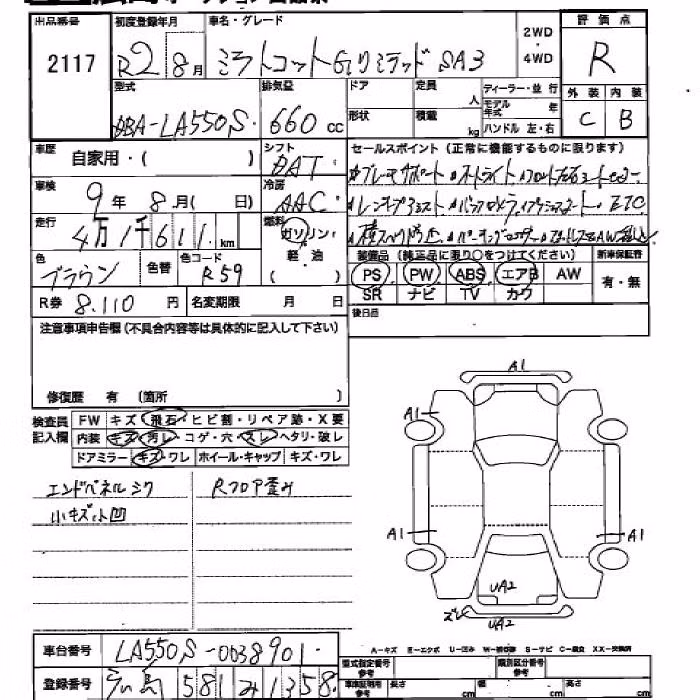 出品番号 初度登録年月 車名・グレード 2WD・4WD 評価点
2117 R2 8月 ミラトコットGリミテッド SA3 R
型式 排気量 ドア 定員 人 ディーラー・並行 外装 内装
DBA-LA550S 660 cc 形状 積載 kg モデル年式 年 ハンドル 左・右 C B
車歴 自家用・( ) シフト DAT セールスポイント (正常に機能するものに限ります)
車検 9年 8月( 日) 冷房 AAC
ETC
走行 4万1千611 km 燃料 ガソリン・軽油 ( )
色 ブラウン 色替 色コード R59
装備品 (純正品に限り○をつけてください) 新車保証書
PS PW ABS エアB AW 有・無
SR ナビ TV カワ
R券 8.110 円 名変期限 月 日
後日品
注意事項申告欄 (不具合内容等は具体的に記入して下さい)
修復歴 有 (箇所 )
検査員記入欄 FW キズ・飛石・ヒビ割・リペア跡・X要
内装 キズ・汚レ・コゲ・穴・スレ・ヘタリ・破レ
ドアミラー キズ・ワレ ホイール・キャップ キズ・ワレ
エンドパネルシワ Rフロア歪み
小キズ小凹
A1
A1
A1 A1
UA2
ズレ UA2
A-キズ E-エクボ U-凹み W-補修跡 S-サビ C-腐食 XX-交換済
車台番号 LA550S-0038901
型式指定番号 参考 類別区分番号 参考
登録番号 広島 581 み 1358
車庫証明用 参考 長さ cm 幅 cm 高さ cm